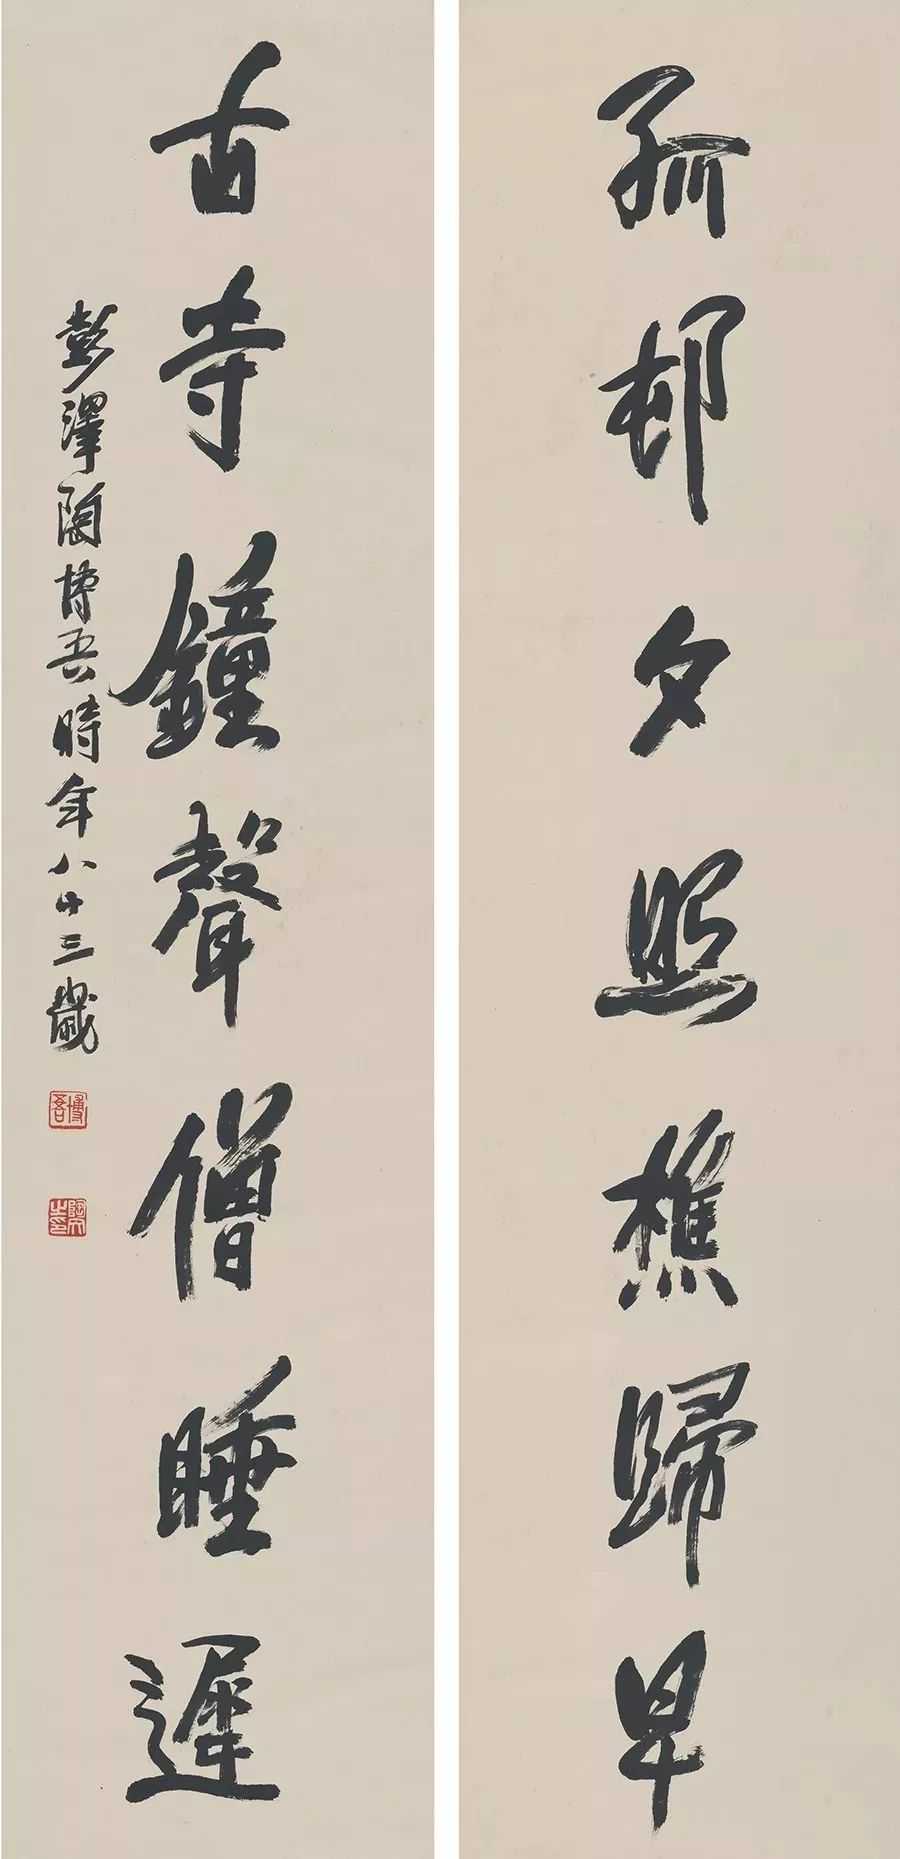 孤邨夕照樵歸早
古寺鐘聲僧睡遲
彭澤陶博吾時年八十三歲
博吾
陶文之印